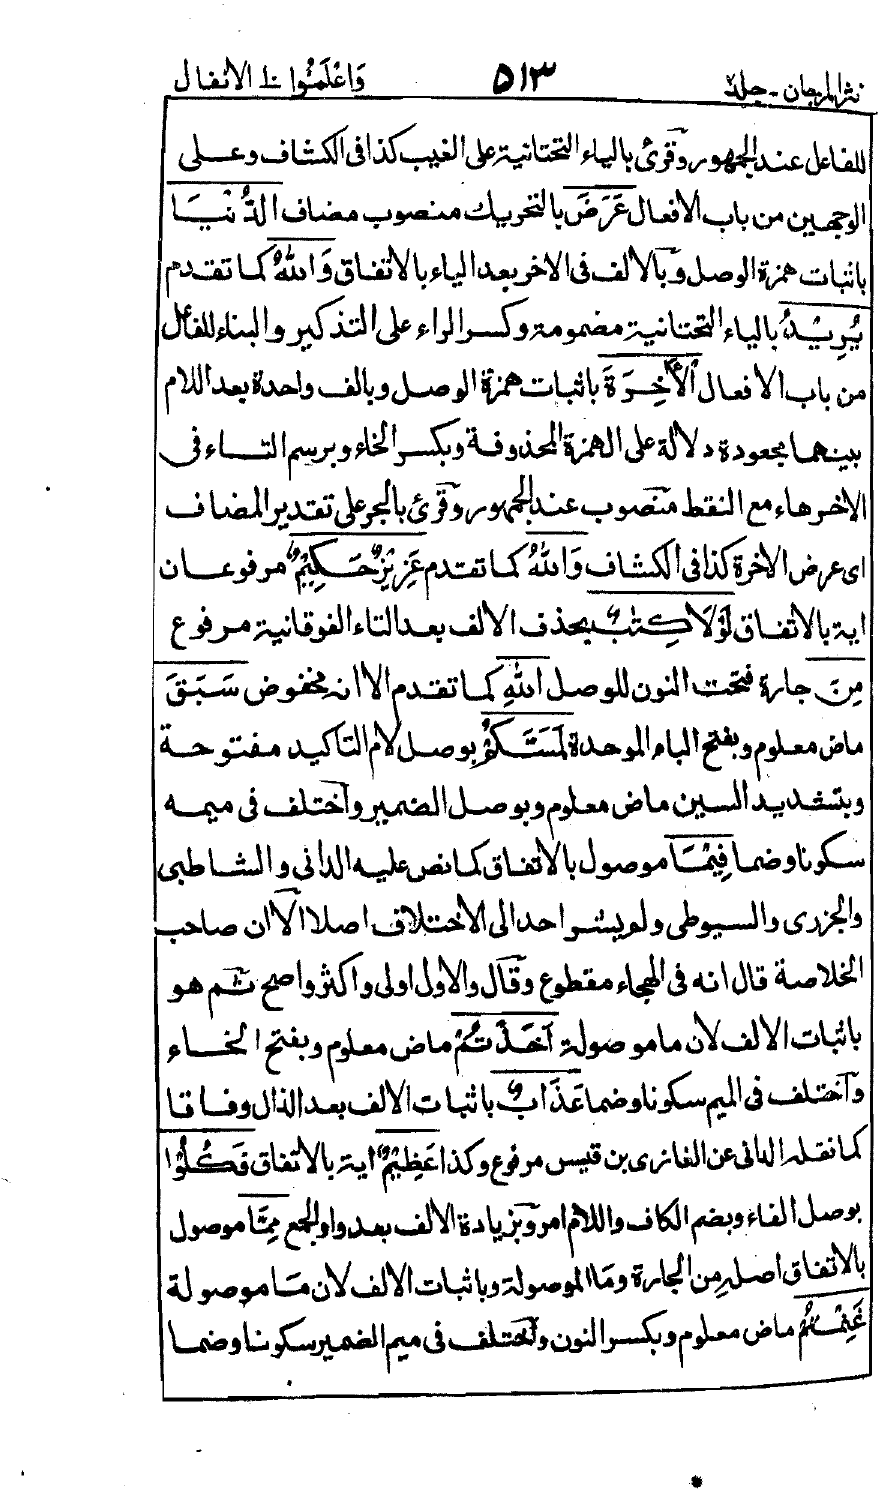 نثر المرجان - جلد٢ ٥١٣ وَاعْلَمُوْا ١٠ الانفال
للفاعل عند الجمهور وقرئ بالياء التحتانية على الغيب كذا فى الكشاف وعلى
الوجهين من باب الافعال عَرَضَ بالتحريك منصوب مضاف الدُّنْيَا
باثبات همزة الوصل وبالالف فى الاخر بعد الياء بالاتفاق وَاللّٰهُ كما تقدم
يُرِيْدُ بالياء التحتانية مضمومة وكسر الراء على التذكير والبناء للفاعل
من باب الافعال الْاٰخِرَةَ باثبات همزة الوصل وبالف واحدة بعد اللام
بينهما مجعودة دلالة على الهمزة المحذوفة وبكسر الخاء وبرسم التاء فى
الاخر هاء مع النقط منصوب عند الجمهور وقرئ بالجر على تقدير المضاف
اى عرض الاخرة كذا فى الكشاف وَاللّٰهُ كما تقدم عَزِيْزٌ حَكِيْمٌ مرفوعان
اية بالاتفاق لَوْلَا كِتٰبٌ بحذف الالف بعد التاء الفوقانية مرفوع
مِنَ جارة فتحت النون للوصل اللّٰهِ كما تقدم الا انه مخفوض سَبَقَ
ماض معلوم وبفتح الباء الموحدة لَمَسَّكُمْ بوصل لام التاكيد مفتوحة
وبتشديد السين ماض معلوم وبوصل الضمير واختلف فى ميمه
سكونا وضما فِيْمَا موصول بالاتفاق كما نص عليه الدانى والشاطبى
والجزرى والسيوطى ولم يشر احد الى الاختلاف اصلا الا ان صاحب
الخلاصة قال انه فى الهجاء مقطوع وقال والاول اولى واكثر واصح ثم هو
باثبات الالف لان ما موصولة اَخَذْتُمْ ماض معلوم وبفتح الخاء
واختلف فى الميم سكونا وضما عَذَابٌ باثبات الالف بعد الذال وفاقا
كما نقله الدانى عن الغازى بن قيس مرفوع وكذا عَظِيْمٌ اية بالاتفاق فَكُلُوْا
بوصل الفاء وبضم الكاف واللام امر وبزيادة الالف بعد واو الجمع مِمَّا موصول
بالاتفاق اصله من الجارة وما الموصولة وباثبات الالف لان ما موصولة
غَنِمْتُمْ ماض معلوم وبكسر النون واختلف فى ميم الضمير سكونا وضما